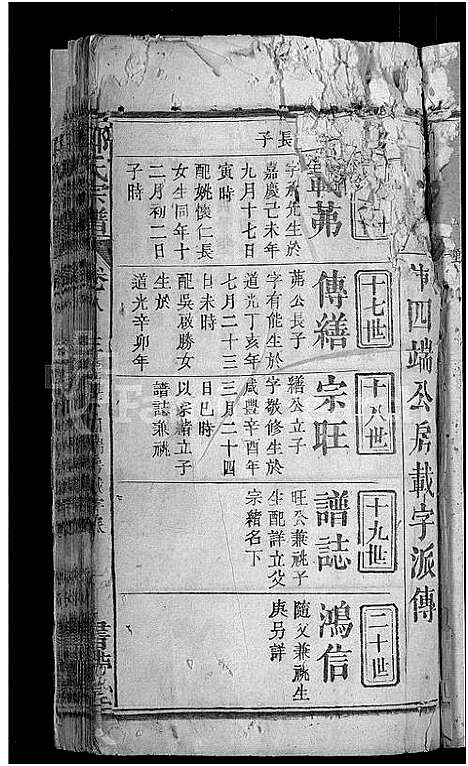 四端公房載字派傳
十七世
十八世
十九世
二十世
長子
載茀
字承先生於
嘉慶己未年
九月十七日
寅時
配姚懷仁長
女生同年十
二月初二日
子時
傳繕
茀公長子
字有能生於
道光丁亥年
七月二十三
日未時
配吳啟勝女
生於
道光辛卯年
宗旺
繕公立子
字敬修生於
咸豐辛酉年
三月二十四
日巳時
以宗緒立子
譜誌兼祧
譜誌
旺公兼祧子
生配詳立父
宗緒名下
鴻信
隨父兼祧生
庚另詳
鄭氏宗譜